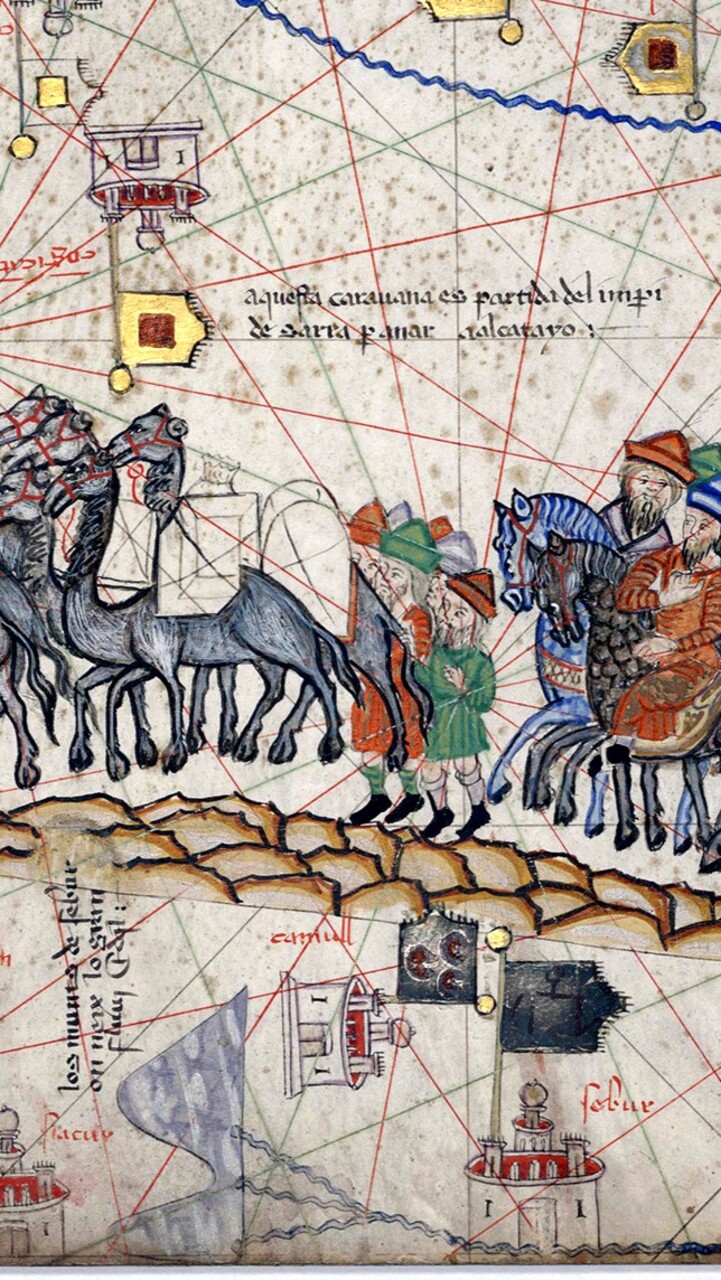 aquesta carauana es partida del imperi
de sarra p anar alcatayo :
los munts de sebur
on nex lo gran
flum Edil :
camull
sebur